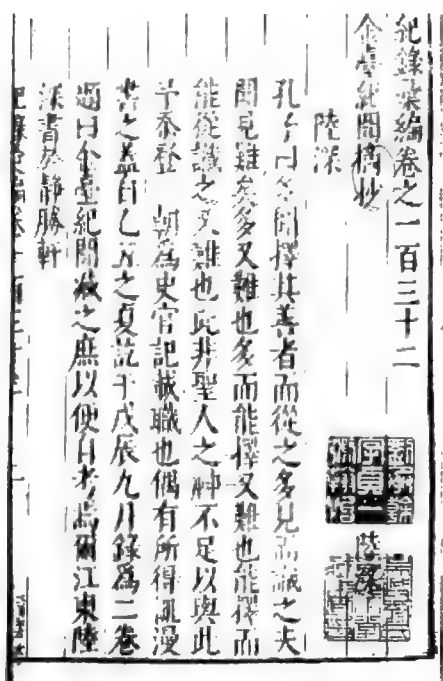 紀錄彙編卷之一百三十二
金臺紀聞摘抄
陸深
孔子曰多聞擇其善者而從之多見而識之夫
聞見難矣多又難也多而能擇又難也能擇而
能從識之又難也此非聖人之神不足以與此
予忝登 朝為史官記載職也偶有所得輒漫
書之蓋自乙丑之夏訖于戊辰九月錄為二卷
題曰金臺紀聞藏之庶以便自考焉爾江東陸
深書於靜勝軒